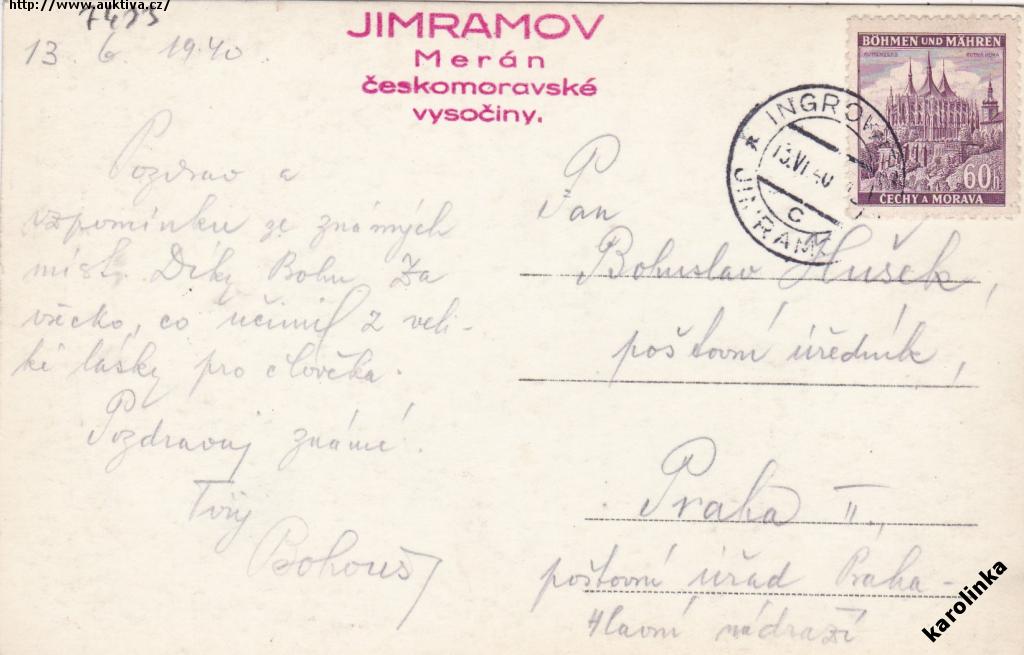 http://www.auktiva.cz/
7433
13 6. 1940.
JIMRAMOV
Merán
českomoravské
vysočiny.
BÖHMEN UND MÄHREN
60h
ČECHY A MORAVA
INGROV
13.VI.40
C
JIMRAM
Pozdrav a
vzpomínku ze známých
míst. Díky Bohu za
všecko, co učinil z veli-
ké lásky pro člověka.
Pozdravuj známé.
Tvůj
Bohouš
P
Pan
Bohuslav Hušek,
poštovní úředník,
Praha II.,
poštovní úřad Praha-
Hlavní nádraží
karolinka